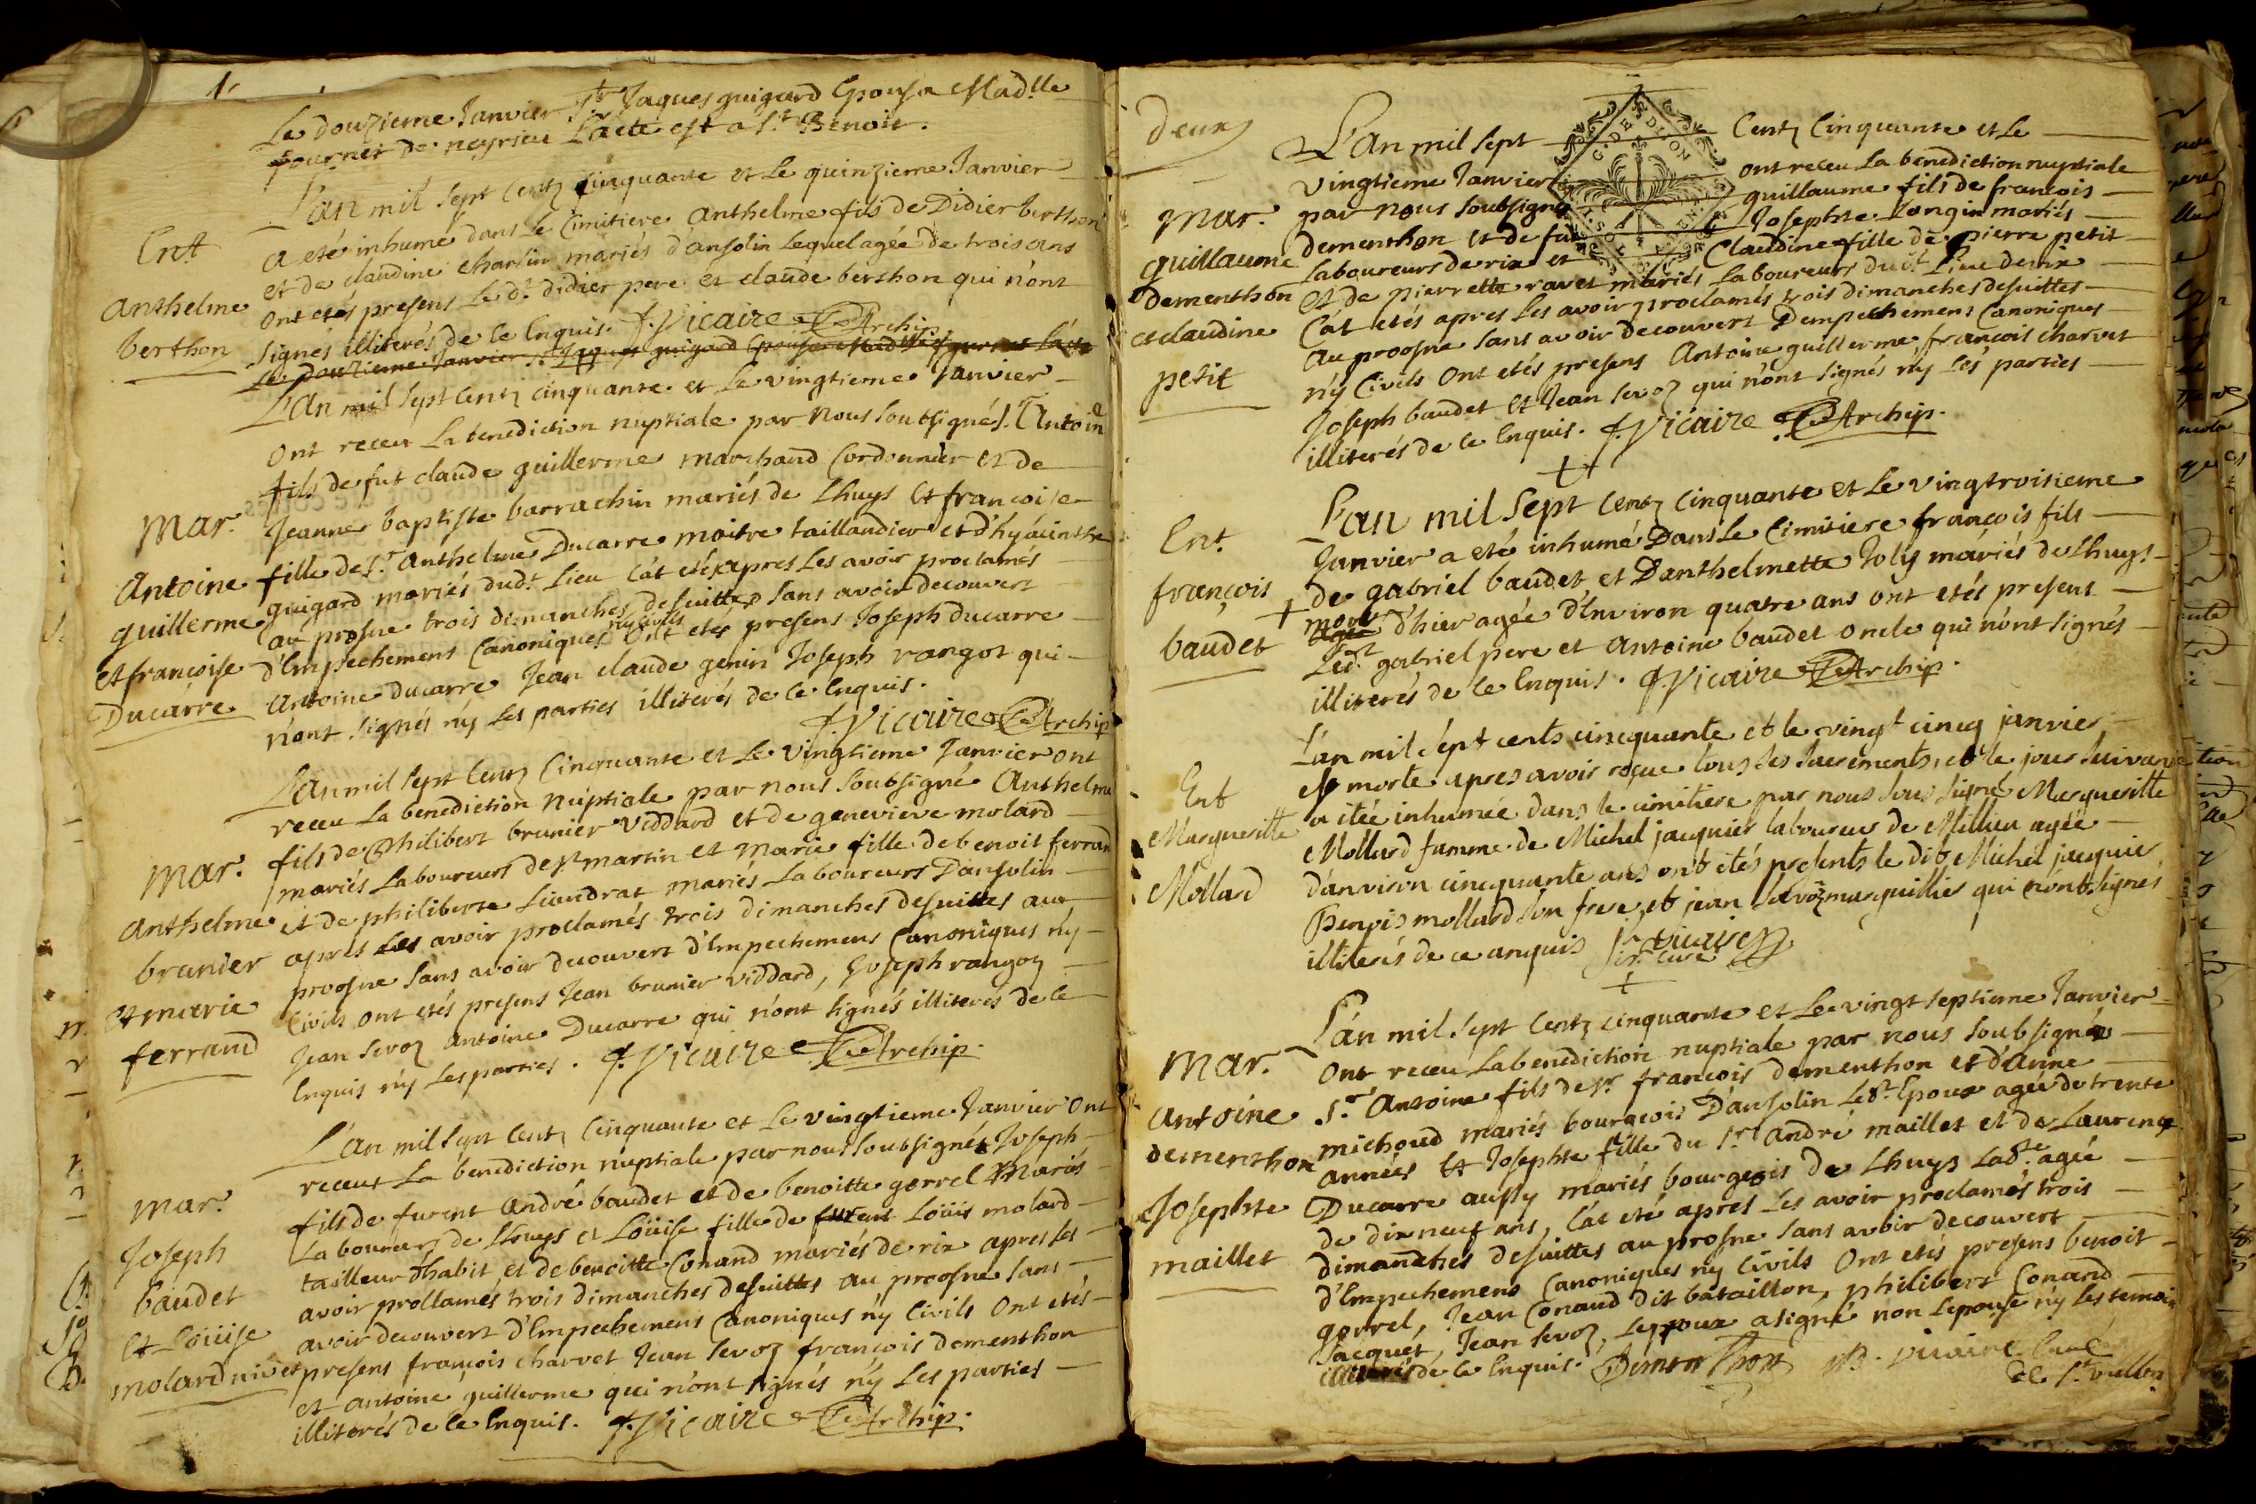 1.
Le douzieme Janvier Sr Jaques guigard Epousa Madlle
fournier de neyrieu L'acte est a St Benoit.
L'an mil Sept Centz Cinquante et Le quinzieme Janvier
a eté inhumé dans Le Cimitiere Anthelme fils de Didier berthon
et de claudine charlin mariés d'ansolin Lequel agée de trois ans
Ont etés presens Le dt didier pere et claude berthon qui n'ont
Signés illiterés de ce Enquis. J. Vicaire Archip.
Ent
Anthelme
berthon
Le Douzieme Janvier Sr Jaques guigard Epousa Madlle
L'An mil Sept Centz Cinquante et Le vingtieme Janvier
Ont receu La benediction nuptiale par Nous Soubsignés Antoine
fils de fut claude guillerme marchand Cordonnier et de
Jeanne baptiste barrachin mariés de Lhuys Et francoise
fille de Sr Anthelme Ducarre maitre taillandier et d'hyacinthe
guigard mariés dudt Lieu L'at eté apres Les avoir proclamés
au prosne trois dimanches desuittes Sans avoir decouvert
d'Empechemens Canoniques ny civils Ont etés presens Joseph ducarre
Antoine Ducarre Jean claude genin Joseph rangot qui
n'ont Signés n'y Les parties illiterés de Ce Enquis.
J. Vicaire Archip
Mar.
Antoine
guillerme
et francoise
Ducarre
L'An mil Sept Centz Cinquante et Le Vingtieme Janvier ont
receu La benediction Nuptiale par nous Soubsigné Anthelme
fils de Philibert brunier Viddard et de genevieve molard
mariés Laboureurs de St martin et Marie fille de benoit ferrand
et de philiberte Liaudrat mariés Laboureurs D'ansolin
apres Les avoir proclamés trois dimanches desuittes au
proosne Sans avoir decouvert d'Empechemens Canoniques n'y
Civils Ont etés presens Jean brunier Viddard, Joseph rangoz
Jean Sevoz Antoine Ducarre qui n'ont Signés illiterés de Ce
Enquis n'y Les parties. J. Vicaire Archip.
Mar.
Anthelme
brunier
et marie
ferrand
L'An mil Sept Centz Cinquante et Le vingtieme Janvier Ont
receus La benediction nuptiale par nous Soubsignés Joseph
fils de furent André baudet et de benoitte gorrel Mariés
Laboureurs de Lhuys et Loüise fille de Loüis molard
tailleur d'habit et de benoitte Conand mariés de rix apres Les
avoir proclamés trois dimanches desuittes au proosne Sans
avoir decouvert d'Empechemens Canoniques n'y Civils Ont etés
presens francois charvet Jean Sevoz francois dementhon
et Antoine guillerme qui n'ont Signés n'y Les parties
illiterés de Ce Enquis. J. Vicaire Archip.
Mar.
Joseph
baudet
Et Loüise
molard
Deux
G. DE DIJON
L'An mil Sept Centz Cinquante et Le
vingtieme Janvier ont receu La benediction nuptiale
par nous Soubsigné guillaume fils de francois
dementhon et de fut Josephte Longin mariés
Laboureurs de rix et Claudine fille de pierre petit
et de pierrette ravet mariés Laboureurs dudt Lieu de rix
L'at etés apres Les avoir proclamés trois dimanches desuittes
au proosne Sans avoir decouvert D'empechemens Canoniques
n'y Civils Ont etés presens Antoine guillerme francois charvet
Joseph baudet Et Jean Sevoz qui n'ont Signés n'y Les parties
illiterés de Ce Enquis. J. Vicaire Archip.
Mar.
guillaume
dementhon
et claudine
petit
L'an mil Sept Centz Cinquante et Le vingtroisieme
Janvier a eté inhumé Dans Le Cimitiere francois fils
de gabriel baudet et D'anthelmette Joly mariés de Lhuys
mort d'hier agée d'Environ quatre ans Ont etés present
Ledt gabriel pere et Antoine baudet Oncle qui n'ont Signés
illiterés de Ce Enquis. J. Vicaire Archip.
Ent
françois
baudet
L'an mil sept cents cincquante et le vingt cincq janvier
est morte apres avoir reçue tous les sacrements, et le jour suivant
a itée inhumée dans le cimitiere par nous sous signé Margueritte
Mollard famme de Michel jacquier laboureur de Millieu agée
d'anviron cincquante ans ont étés presents le dit Michel jacquier
Benois mollard son frere, et jean Savoz marguillier qui n'ont signes
illiterés de ce anquis vicaire
curé
Ent
Margueritte
Mollard
L'an mil Sept Centz Cinquante et Le vingt septieme Janvier
Ont receu La benediction nuptiale par nous Soubsignés
Sr Antoine fils de Sr francois dementhon et d'Anne
michoud mariés bourgeois D'ansolin Ledt Epoux agée de trente
années Et Josephte fille du Sr André maillet et de Laurence
Ducarre aussy mariés bourgeois de Lhuys Ladte agée
de dixneuf ans, L'at eté apres Les avoir proclamés trois
dimanches desuittes au prosne Sans avoir decouvert
d'Empechemens Canoniques n'y Civils Ont etés presens benoit
gorrel, Jean Conand dit bataillon, philibert Conand
Jacquet, Jean Sevoz, L'epoux a signé non L'epouse n'y Les temoins
illiterés de Ce Enquis. Dementhon vicaire
de St
Mar.
Antoine
dementhon
Josephte
maillet